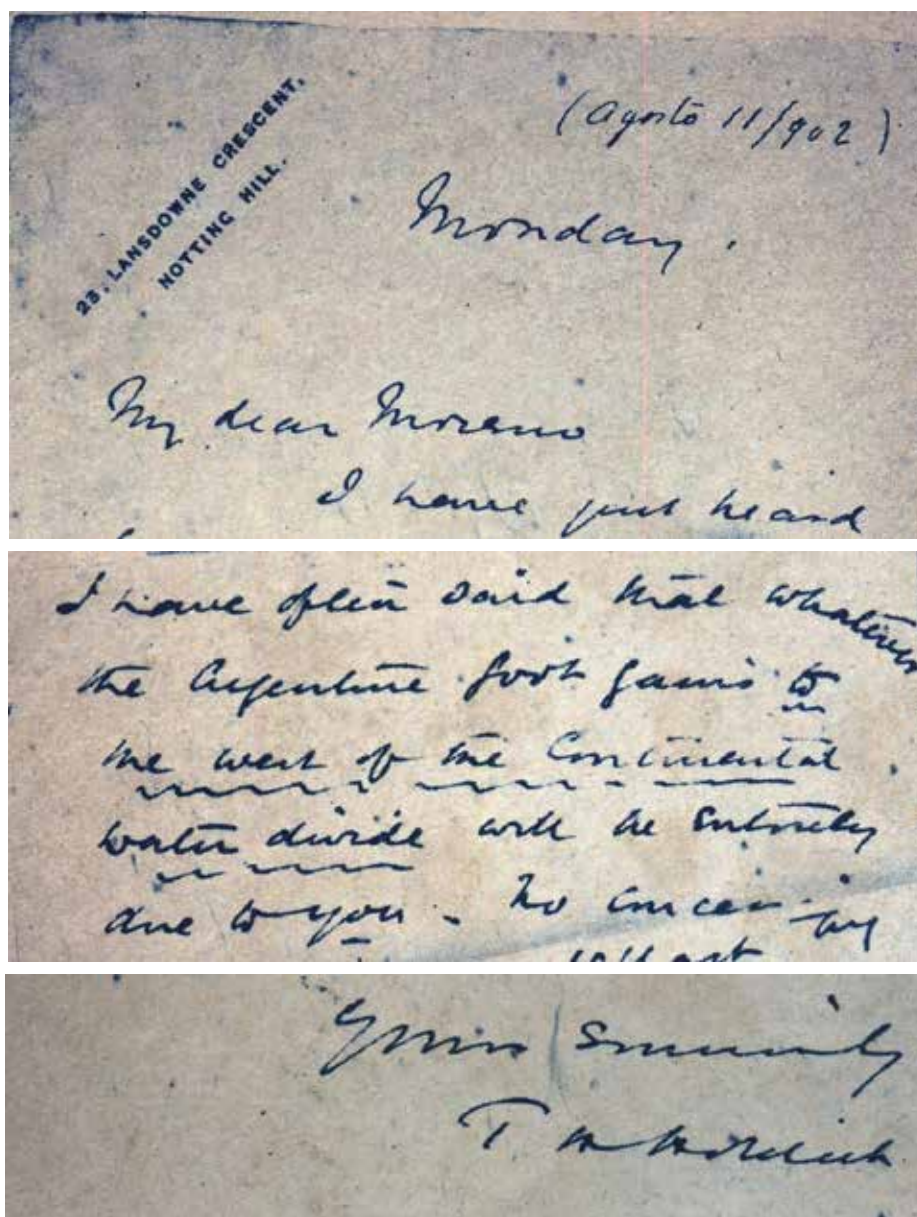 23, LANSDOWNE CRESCENT,
NOTTING HILL.
(Agosto 11/902)
Monday.
My dear Moreno
I have just heard
I have often said that whatever
the Argentine Govt gains to
the west of the Continental
water divide will be entirely
due to you.
Yours Sincerely
T. H. Holdich